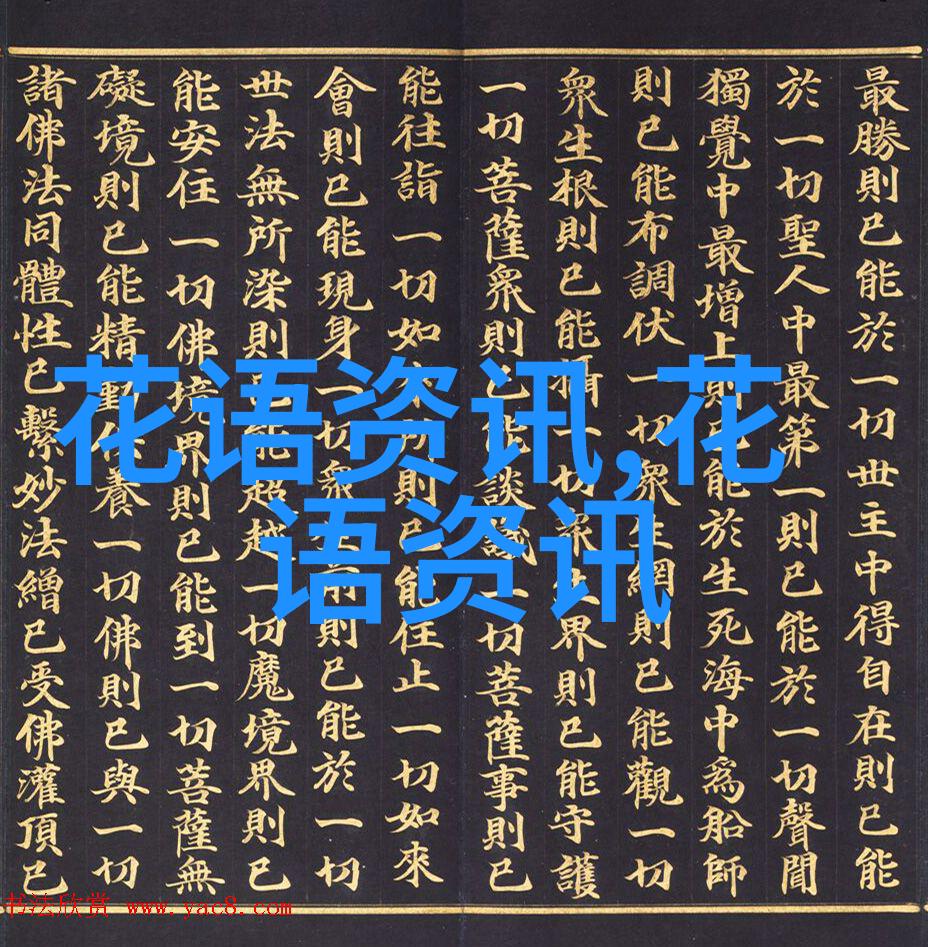 最勝則已能於一切世主中得自在則已能
於一切聖人中最第一則已能於一切聲聞
獨覺中最增上則已能於生死海中為船師
則已能布調伏一切眾生網則已能觀一切
眾生根則已能攝一切眾生界則已能守護
一切菩薩眾則已能談議一切菩薩事則已
能往詣一切如來所則已能住止一切如來
會則已能現身一切眾生前則已能於一切
世法無所染則已能超越一切魔境界則已
能安住一切佛境界則已能到一切菩薩無
礙境則已能精勤供養一切佛則已與一切
諸佛法同體性已繫妙法繒已受佛灌頂已
花语资讯,花
语资讯
书法欣赏 www.yac8.com